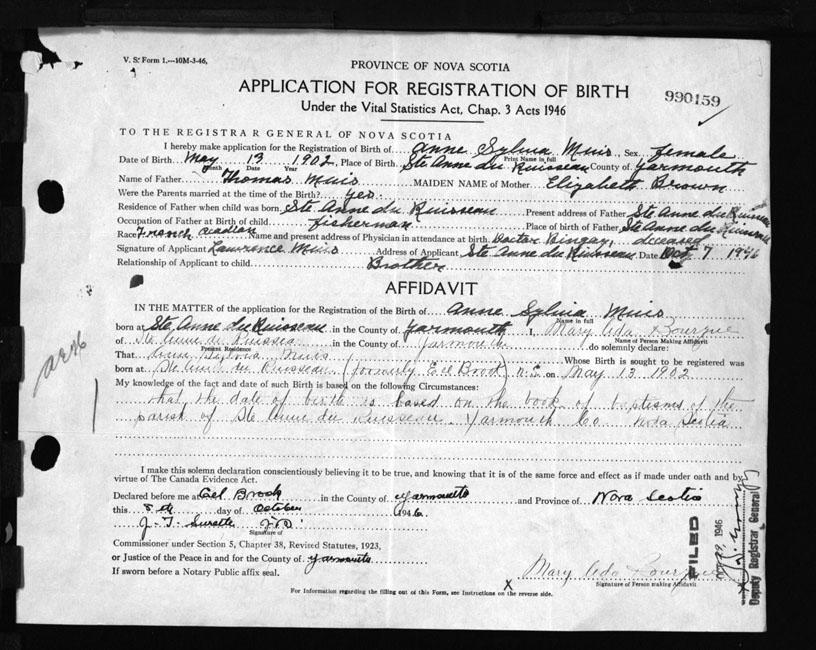 V. S. Form 1.—10M-3-46.
PROVINCE OF NOVA SCOTIA
APPLICATION FOR REGISTRATION OF BIRTH
990159
Under the Vital Statistics Act, Chap. 3 Acts 1946
TO THE REGISTRAR GENERAL OF NOVA SCOTIA
I hereby make application for the Registration of Birth of Anne Sylvia Muis, Sex female
Print Name in full
Date of Birth May 13 1902, Place of Birth Ste Anne du Ruisseau County of Yarmouth
Month Date Year
Name of Father Thomas Muis MAIDEN NAME of Mother Elizabeth Brown
Were the Parents married at the time of the Birth? yes
Residence of Father when child was born Ste Anne du Ruisseau Present address of Father Ste Anne du Ruisseau
Occupation of Father at Birth of child fisherman Place of birth of Father Ste Anne du Ruisseau
Race French Name and present address of Physician in attendance at birth Doctor Bingay, deceased
Signature of Applicant Lawrence Muis Address Ste Anne du Ruisseau Date Oct 7 1946
Relationship of Applicant to child Brother
AFFIDAVIT
IN THE MATTER of the application for the Registration of the Birth of Anne Sylvia Muis
Name in full
born at Ste Anne du Ruisseau in the County of Yarmouth I, Mary Ada
Name of Person Making Affidavit
of Ste Anne du in the County of Yarmouth do solemnly declare:
Present Residence
That Muis Whose Birth is sought to be registered was
born at Ste Anne du Ruisseau (formerly Eel Brook) N. S. on May 13 1902
My knowledge of the fact and date of such Birth is based on the following Circumstances:
that the date of birth is based on the book of baptisms of the
parish of Ste Anne du Ruisseau Yarmouth Co Nova Scotia
I make this solemn declaration conscientiously believing it to be true, and knowing that it is of the same force and effect as if made under oath and by
virtue of The Canada Evidence Act.
Declared before me at Eel Brook in the County of Yarmouth and Province of Nova Scotia
this 8 th day of October 1946.
J. T. Surette
Signature of
Commissioner under Section 5, Chapter 38, Revised Statutes, 1923,
or Justice of the Peace in and for the County of Yarmouth
If sworn before a Notary Public affix seal.
X Mary Ada
Signature of Person making Affidavit
For Information regarding the filling out of this Form, see Instructions on the reverse side.
FILED
1946
Deputy Registrar General